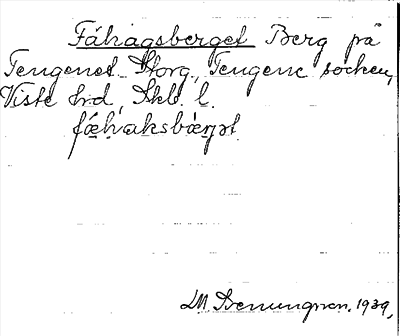 Fähagsberget Berg på
Tengened Storg, Tengene socken,
Viste hrd, Skb. l.
fǽhaksbærjət
LM Svenungsson. 1939,